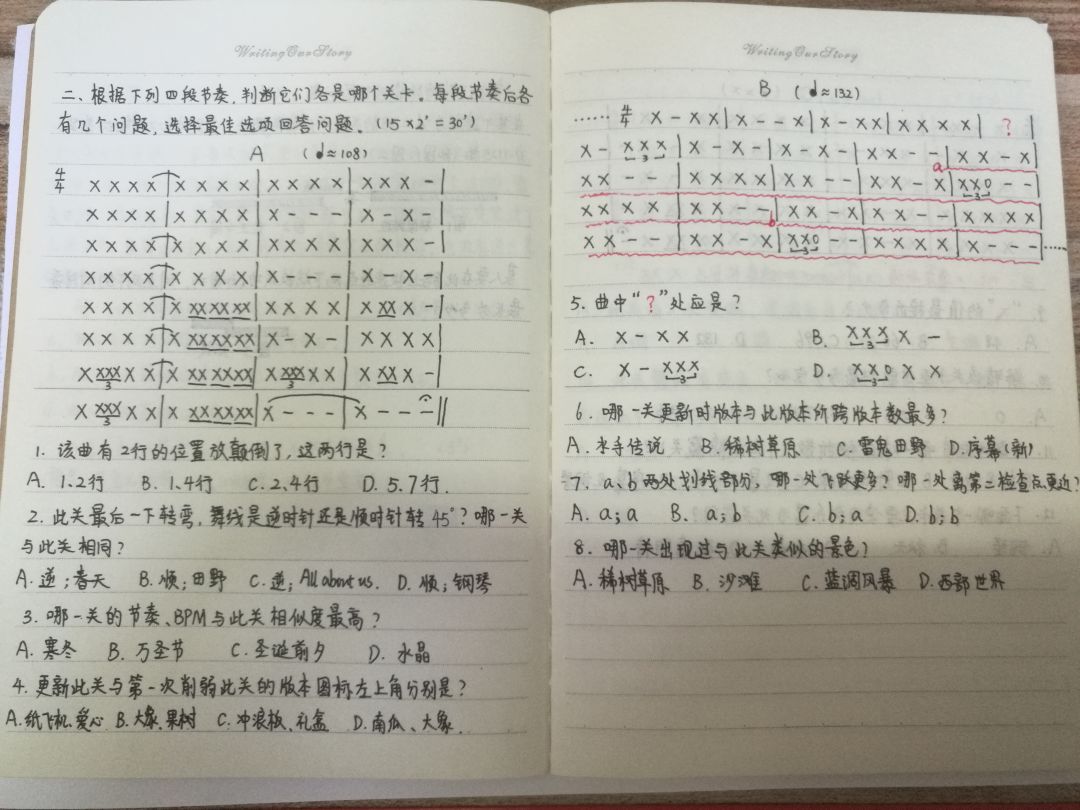 Writing Our Story
二、根据下列四段节奏,判断它们各是哪个关卡。每段节奏后各
有几个问题,选择最佳选项回答问题。(15×2'=30')
A (♩≈108)
4/4 X X X X | X X X X | X X X X | X X X - |
X X X X | X X X X | X - - - | X - X - |
X X X X | X X X X | X X X X | X X X - |
X X X X | X X X X | X - - - | X - X - |
X X X X | XX XX XX | X X X X | X XX X - |
X X X X | X XX XX XX | X - X - | X X X X |
X XXX X X | X XX XX XX | X XXX X X | X XX X - |
X XXX X X | X XX XX XX | X - - - | X - - - ||
1. 该曲有2行的位置放颠倒了,这两行是?
A. 1、2行 B. 1、4行 C. 2、4行 D. 5、7行.
2. 此关最后一下转弯,舞线是逆时针还是顺时针转45°?哪一关
与此关相同?
A. 逆;春天 B. 顺;田野 C. 逆;All about us. D. 顺;钢琴
3. 哪一关的节奏、BPM与此关相似度最高?
A. 寒冬 B. 万圣节 C. 圣诞前夕 D. 水晶
4. 更新此关与第一次削弱此关的版本图标左上角分别是?
A. 纸飞机、爱心 B. 大象、果树 C. 冲浪板、礼盒 D. 南瓜、大象.
Writing Our Story
B (♩≈132)
…… 4/4 X - X X | X - - X | X - X X | X X X X | ? |
X - XXX | X - X - | X - X - | X X - - | X X - X |
a
X X - - | X X X X | X X - - | X X - X | XX0 - - |
X X X X | X X - - | X X - X | X X - - | X X X X |
b
X X - - | X X - X | XX0 - - | X X X X | X - - - | ……
5. 曲中“?”处应是?
A. X - X X B. XXX X -
C. X - XXX D. XX0 X X
6. 哪一关更新时版本与此版本所跨版本数最多?
A. 水手传说 B. 稀树草原 C. 雷鬼田野 D. 序幕(新)
7. a、b两处划线部分,哪一处飞跃更多?哪一处离第二检查点更近?
A. a;a B. a;b C. b;a D. b;b
8. 哪一关出现过与此关类似的景色?
A. 稀树草原 B. 沙滩 C. 蓝调风暴 D. 西部世界